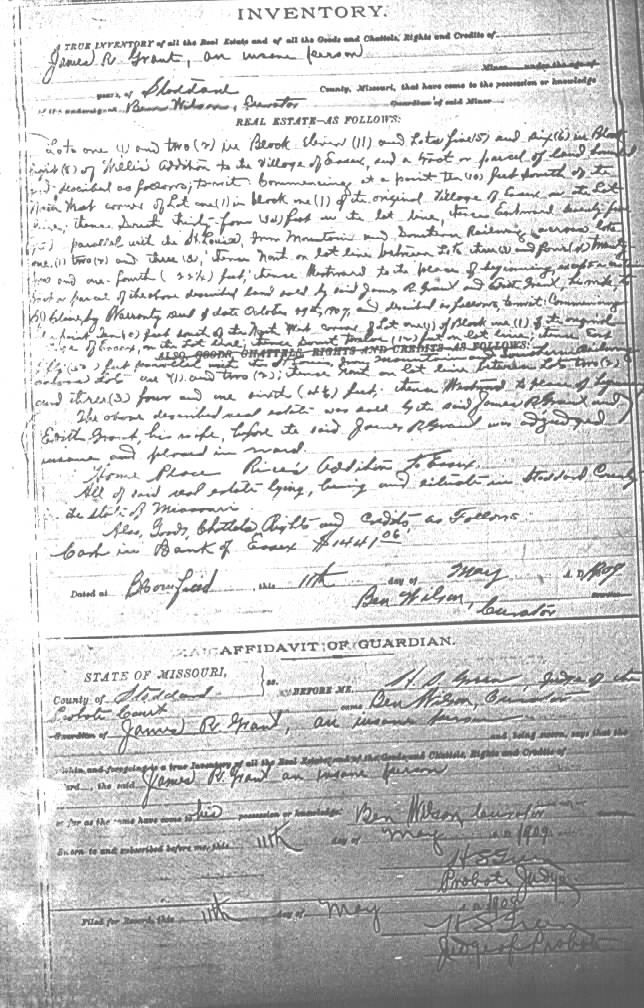 INVENTORY.
TRUE INVENTORY of all the Real Estate and of all the Goods and Chattels, Rights and Credits of
James R. Grant, an insane person
Minor under the age of
years, of Stoddard County, Missouri, that have come to the possession or knowledge
of the undersigned Ben Wilson, Curator Guardian of said Minor
REAL ESTATE—AS FOLLOWS:
Lots one (1) and two (2) in Block Eleven (11) and Lots five (5) and six (6) in Block
eight (8) of Addition to the Village of Essex, and a tract or parcel of land
described as follows, to-wit: Commencing at a point Ten (10) feet South of the
West corner of Lot one (1) in block one (1) of the original Village of Essex on the Lot
line, thence South thirty-four (34) feet on the lot line, thence Eastward
parallel with the St. Louis, Iron Mountain and Southern Railway across lots
one (1) two (2) and three (3), thence North on lot line between Lots three (3) and four (4) twenty
two and one-fourth (22¼) feet, thence Westward to the place of beginning, except a
tract or parcel of the above described land sold by said James R. Grant and Grant, his wife, to
by Warranty Deed of date October 1907, and described as follows, to-wit: Commencing
point Ten (10) feet South of the North West corner of Lot one (1) of Block one (1) of the original
of Essex, on the Lot line, thence South twelve (12) feet on lot line, thence East
ALSO, GOODS, CHATTELS, RIGHTS AND CREDITS AS FOLLOWS:
fifty (50) feet parallel with the St. Louis, Iron Mountain and Southern Railway
across Lots one (1) and two (2); thence North on lot line between Lots two (2)
and three (3) four and one sixth (4⅙) feet, thence Westward to place of
The above described real estate was sold by the said James R. Grant and
Edith Grant, his wife, before the said James R. Grant was adjudged
insane and placed in ward.
Home Place Rice's Addition to Essex.
All of said real estate lying, being and situate in Stoddard County
the State of Missouri
Also, Goods, Chattels Rights and Credits, as Follows
Cash in Bank of Essex $1441.06
Dated at Bloomfield this 11th day of May A. D. 1909
Ben Wilson, Curator
AFFIDAVIT OF GUARDIAN.
STATE OF MISSOURI,
County of Stoddard ss. BEFORE ME, Judge of the
Probate Court came Ben Wilson, Curator
Guardian of James R. Grant, an insane person
and being sworn, says that the
within and foregoing is a true Inventory of all the Real Estate, and of the Goods and Chattels, Rights and Credits of
ward, the said James R. Grant an insane person
so far as the same have come to his possession or knowledge. Ben Wilson Curator
Sworn to and subscribed before me, this 11th day of May 1909
Probate Judge
Filed for Record, this 11th day of May 1909
Judge of Probate